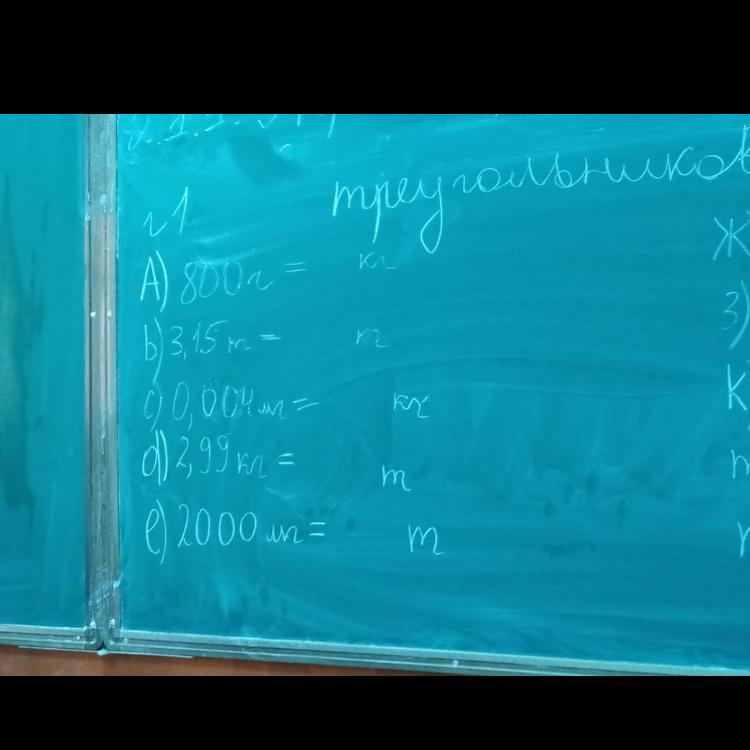 треугольников
г1
A) 800г = кг
b) 3,15 т = кг
c) 0,004 мг = кг
d) 2,99 кг = т
e) 2000 мг = т
Ж
3)